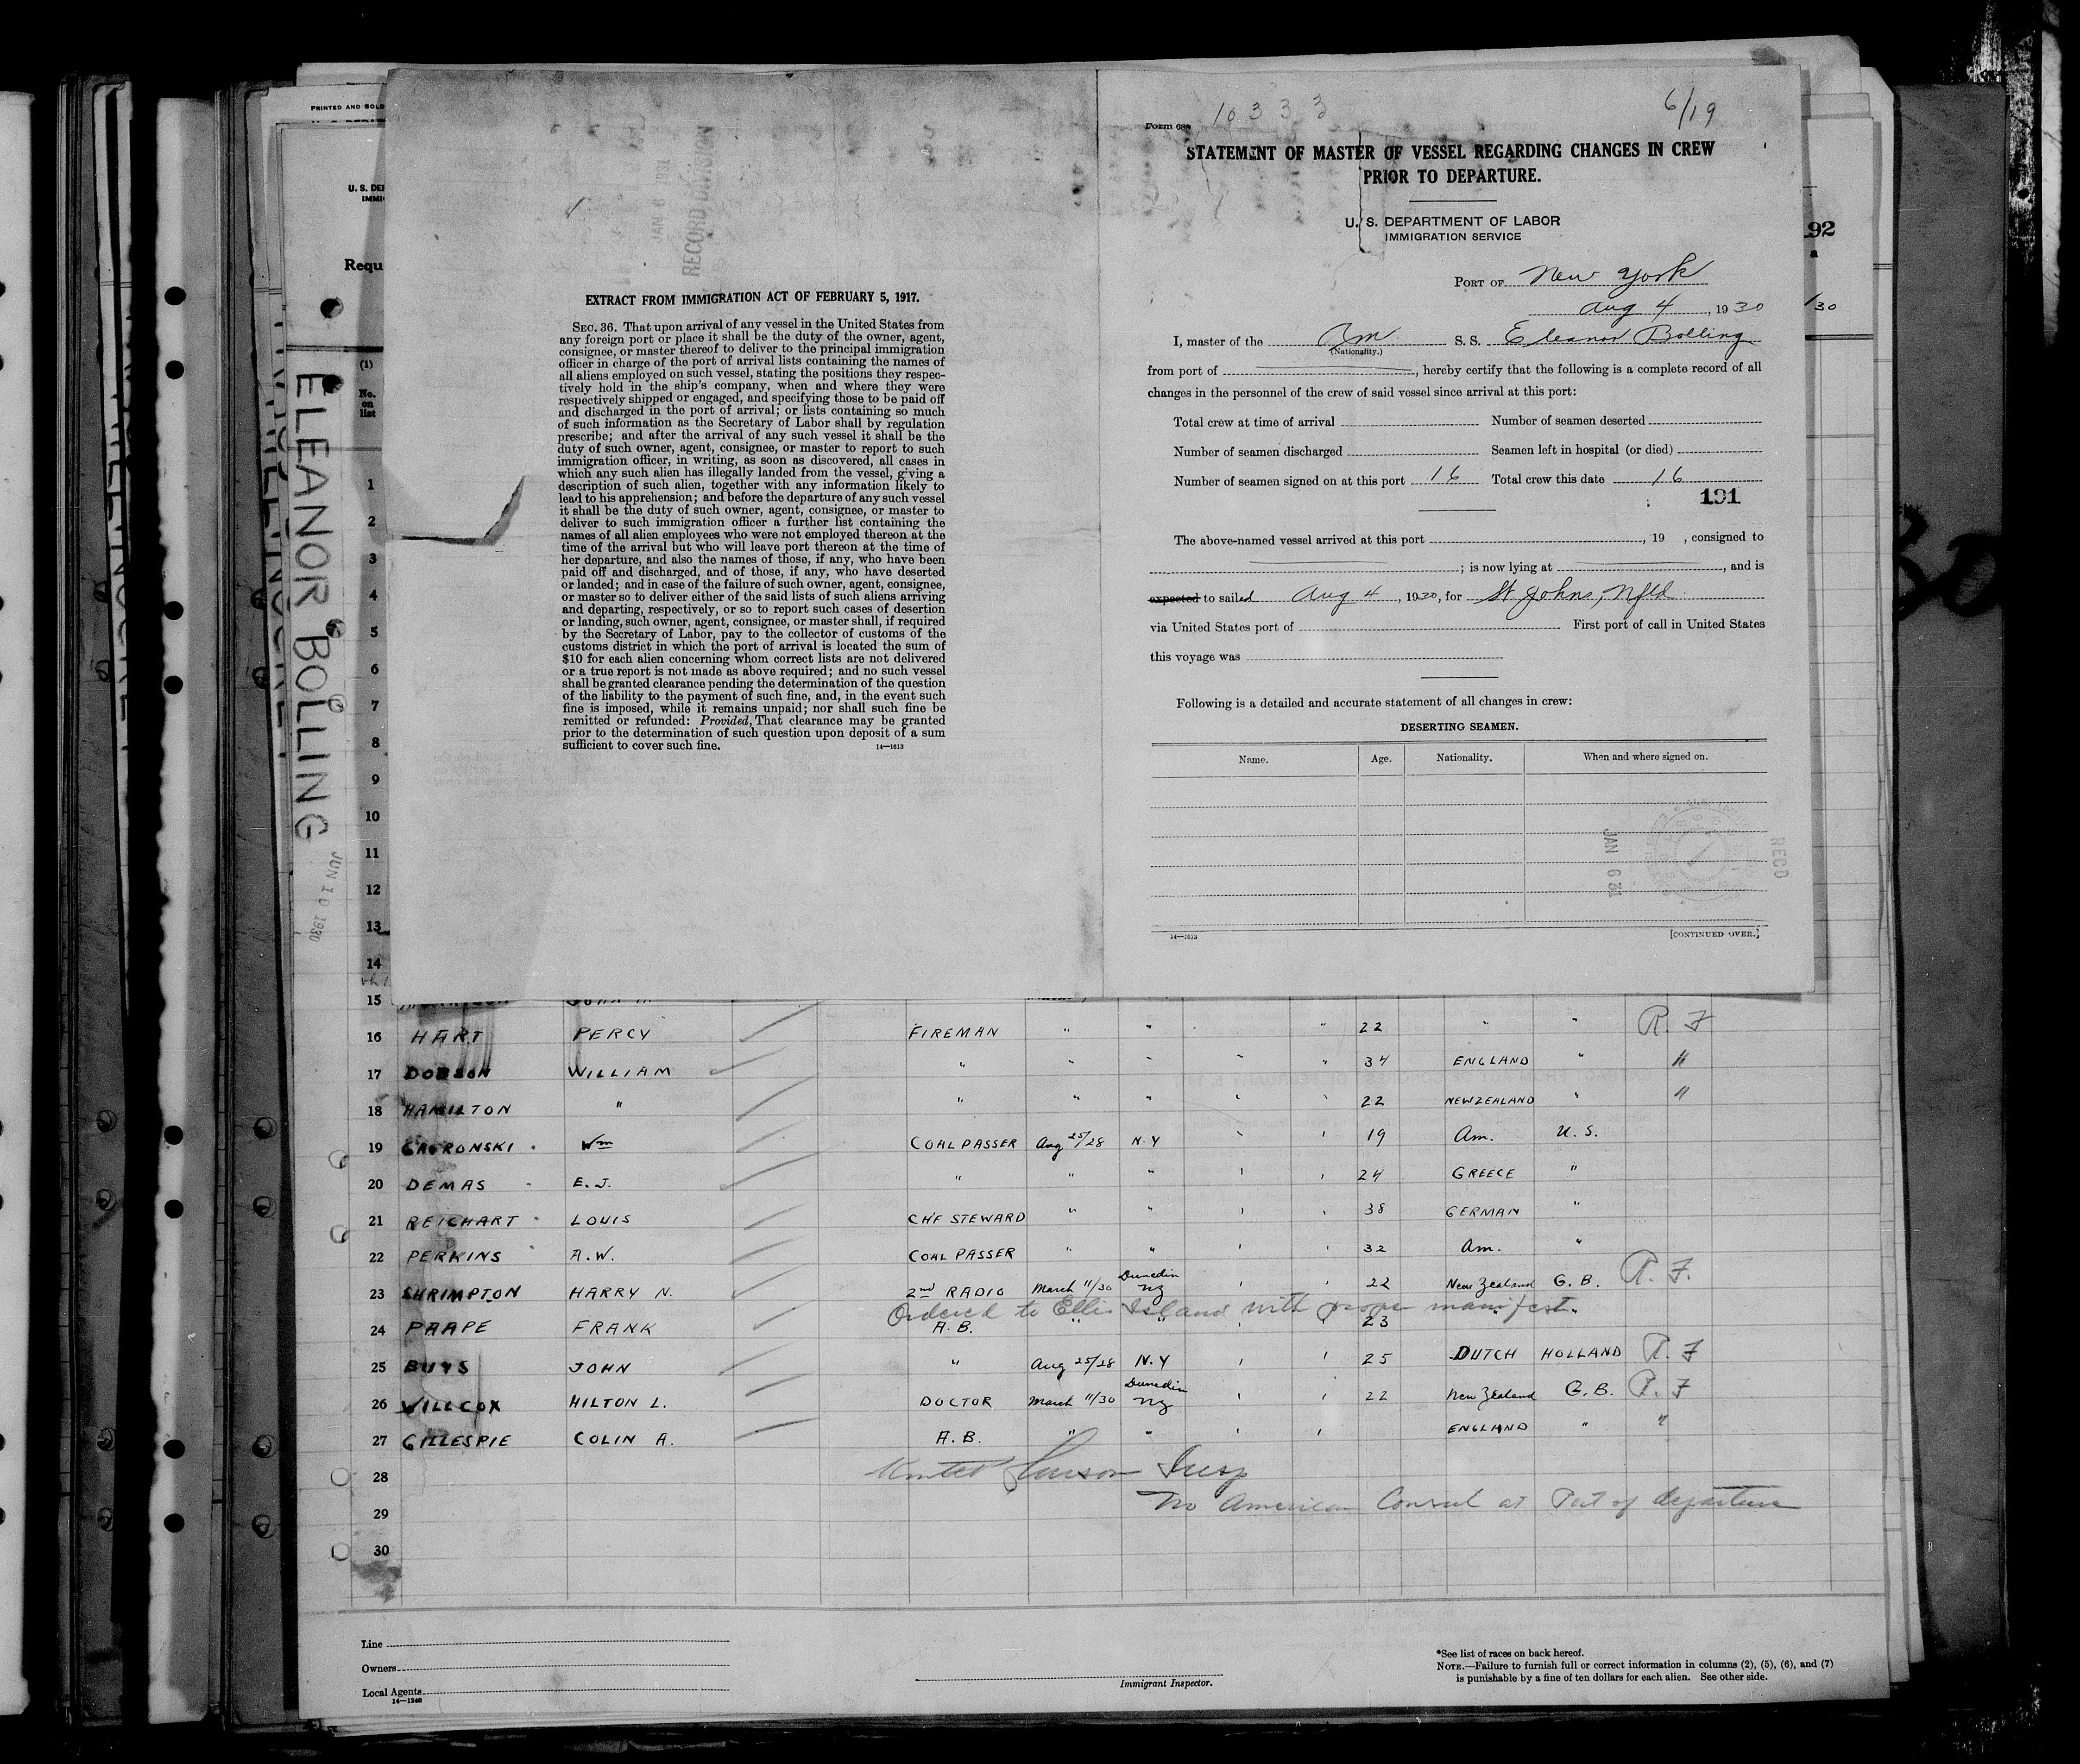 PRINTED AND SOLD
U. S. DE
IMMI
Requ
(1)
No.
on
list
ELEANOR BOLLING
JUN 10 1930
JAN 6 1931
RECORD DIVISION
EXTRACT FROM IMMIGRATION ACT OF FEBRUARY 5, 1917.
SEC. 36. That upon arrival of any vessel in the United States from
any foreign port or place it shall be the duty of the owner, agent,
consignee, or master thereof to deliver to the principal immigration
officer in charge of the port of arrival lists containing the names of
all aliens employed on such vessel, stating the positions they respec-
tively hold in the ship's company, when and where they were
respectively shipped or engaged, and specifying those to be paid off
and discharged in the port of arrival; or lists containing so much
of such information as the Secretary of Labor shall by regulation
prescribe; and after the arrival of any such vessel it shall be the
duty of such owner, agent, consignee, or master to report to such
immigration officer, in writing, as soon as discovered, all cases in
which any such alien has illegally landed from the vessel, giving a
description of such alien, together with any information likely to
lead to his apprehension; and before the departure of any such vessel
it shall be the duty of such owner, agent, consignee, or master to
deliver to such immigration officer a further list containing the
names of all alien employees who were not employed thereon at the
time of the arrival but who will leave port thereon at the time of
her departure, and also the names of those, if any, who have been
paid off and discharged, and of those, if any, who have deserted
or landed; and in case of the failure of such owner, agent, consignee,
or master so to deliver either of the said lists of such aliens arriving
and departing, respectively, or so to report such cases of desertion
or landing, such owner, agent, consignee, or master shall, if required
by the Secretary of Labor, pay to the collector of customs of the
customs district in which the port of arrival is located the sum of
$10 for each alien concerning whom correct lists are not delivered
or a true report is not made as above required; and no such vessel
shall be granted clearance pending the determination of the question
of the liability to the payment of such fine, and, in the event such
fine is imposed, while it remains unpaid; nor shall such fine be
remitted or refunded: Provided, That clearance may be granted
prior to the determination of such question upon deposit of a sum
sufficient to cover such fine. 14—1613
10333 6/19
Form 689
STATEMENT OF MASTER OF VESSEL REGARDING CHANGES IN CREW
PRIOR TO DEPARTURE.
U. S. DEPARTMENT OF LABOR
IMMIGRATION SERVICE
PORT OF New York
Aug 4, 1930
I, master of the Am S. S. Eleanor Bolling
(Nationality.)
from port of , hereby certify that the following is a complete record of all
changes in the personnel of the crew of said vessel since arrival at this port:
Total crew at time of arrival Number of seamen deserted
Number of seamen discharged Seamen left in hospital (or died)
Number of seamen signed on at this port 16 Total crew this date 16
191
The above-named vessel arrived at this port , 19 , consigned to
; is now lying at , and is
expected to sailed Aug 4, 1930, for St Johns, Nfld
via United States port of First port of call in United States
this voyage was
Following is a detailed and accurate statement of all changes in crew:
DESERTING SEAMEN.
Name. Age. Nationality. When and where signed on.
JAN 6 31
RECD
14—1613 [CONTINUED OVER.]
92
30
1
2
3
4
5
6
7
8
9
10
11
12
13
14
15
16 HART PERCY FIREMAN " " " 22 " " R. F
17 DOBSON WILLIAM " " " " " 34 ENGLAND " "
18 HAMILTON " " " " " " 22 NEW ZEALAND " "
19 GAVRONSKI Wm COAL PASSER Aug 25/28 N.Y " " 19 Am. U. S.
20 DEMAS E. J. " " " " " 24 GREECE "
21 REICHART LOUIS CHF STEWARD " " " " 38 GERMAN "
22 PERKINS A. W. COAL PASSER " " " " 32 Am. "
23 SHRIMPTON HARRY N. 2nd RADIO March 11/30 Dunedin NZ " " 22 New Zealand G. B. R. F.
Ordered to Ellis Island with proper manifest.
24 PAAPE FRANK A. B. " " " " 23 " "
25 BUYS JOHN " Aug 25/28 N.Y " " 25 DUTCH HOLLAND R. F
26 WILLCOX HILTON L. DOCTOR March 11/30 Dunedin NZ " " 22 New Zealand G. B. R. F
27 GILLESPIE COLIN A. A. B. " " " " ENGLAND " "
28 Insp
29 No American Consul at Port of departure
30
Line
Owners
Local Agents
14—1240
Immigrant Inspector.
*See list of races on back hereof.
NOTE.—Failure to furnish full or correct information in columns (2), (5), (6), and (7)
is punishable by a fine of ten dollars for each alien. See other side.